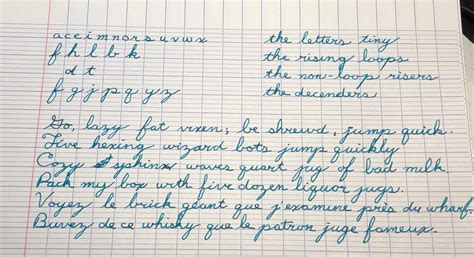 a c e i m n o r s u v w x the letters tiny
f h l b k the rising loops
d t the non-loop risers
f g j p q y z the decenders
Go, lazy fat vixen; be shrewd, jump quick.
Five hexing wizard bots jump quickly
Cozy sphinx waves quart jug of bad milk.
Pack my box with five dozen liquor jugs.
Voyez le brick géant que j'examine près du wharf
Buvez de ce whisky que le patron juge fameux.